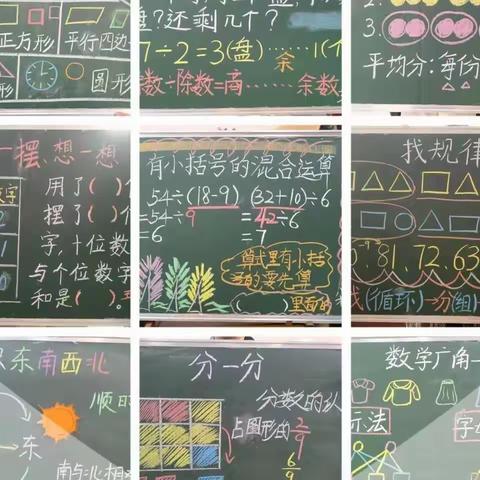 正方形
平行四边
形
圆形
?还剩几个?
7÷2=3(盘)……1(个
余
数÷除数=商……余数
2.
3.
平均分:每份
一摆,想一想
数字
用了( )个
摆了( )个
字,十位数
与个位数字
和是( )。
有小括号的混合运算
54÷(18-9)
=54÷9
=6
(32+10)÷6
=42÷6
=7
算式里有小括
号的要先算
( )里面的
找规律
81,72,63
(循环)→分(组)
东南西北
顺时
东
南与北相
分一分
分数的认
占图形的2/9
6/9
数学广角
示法